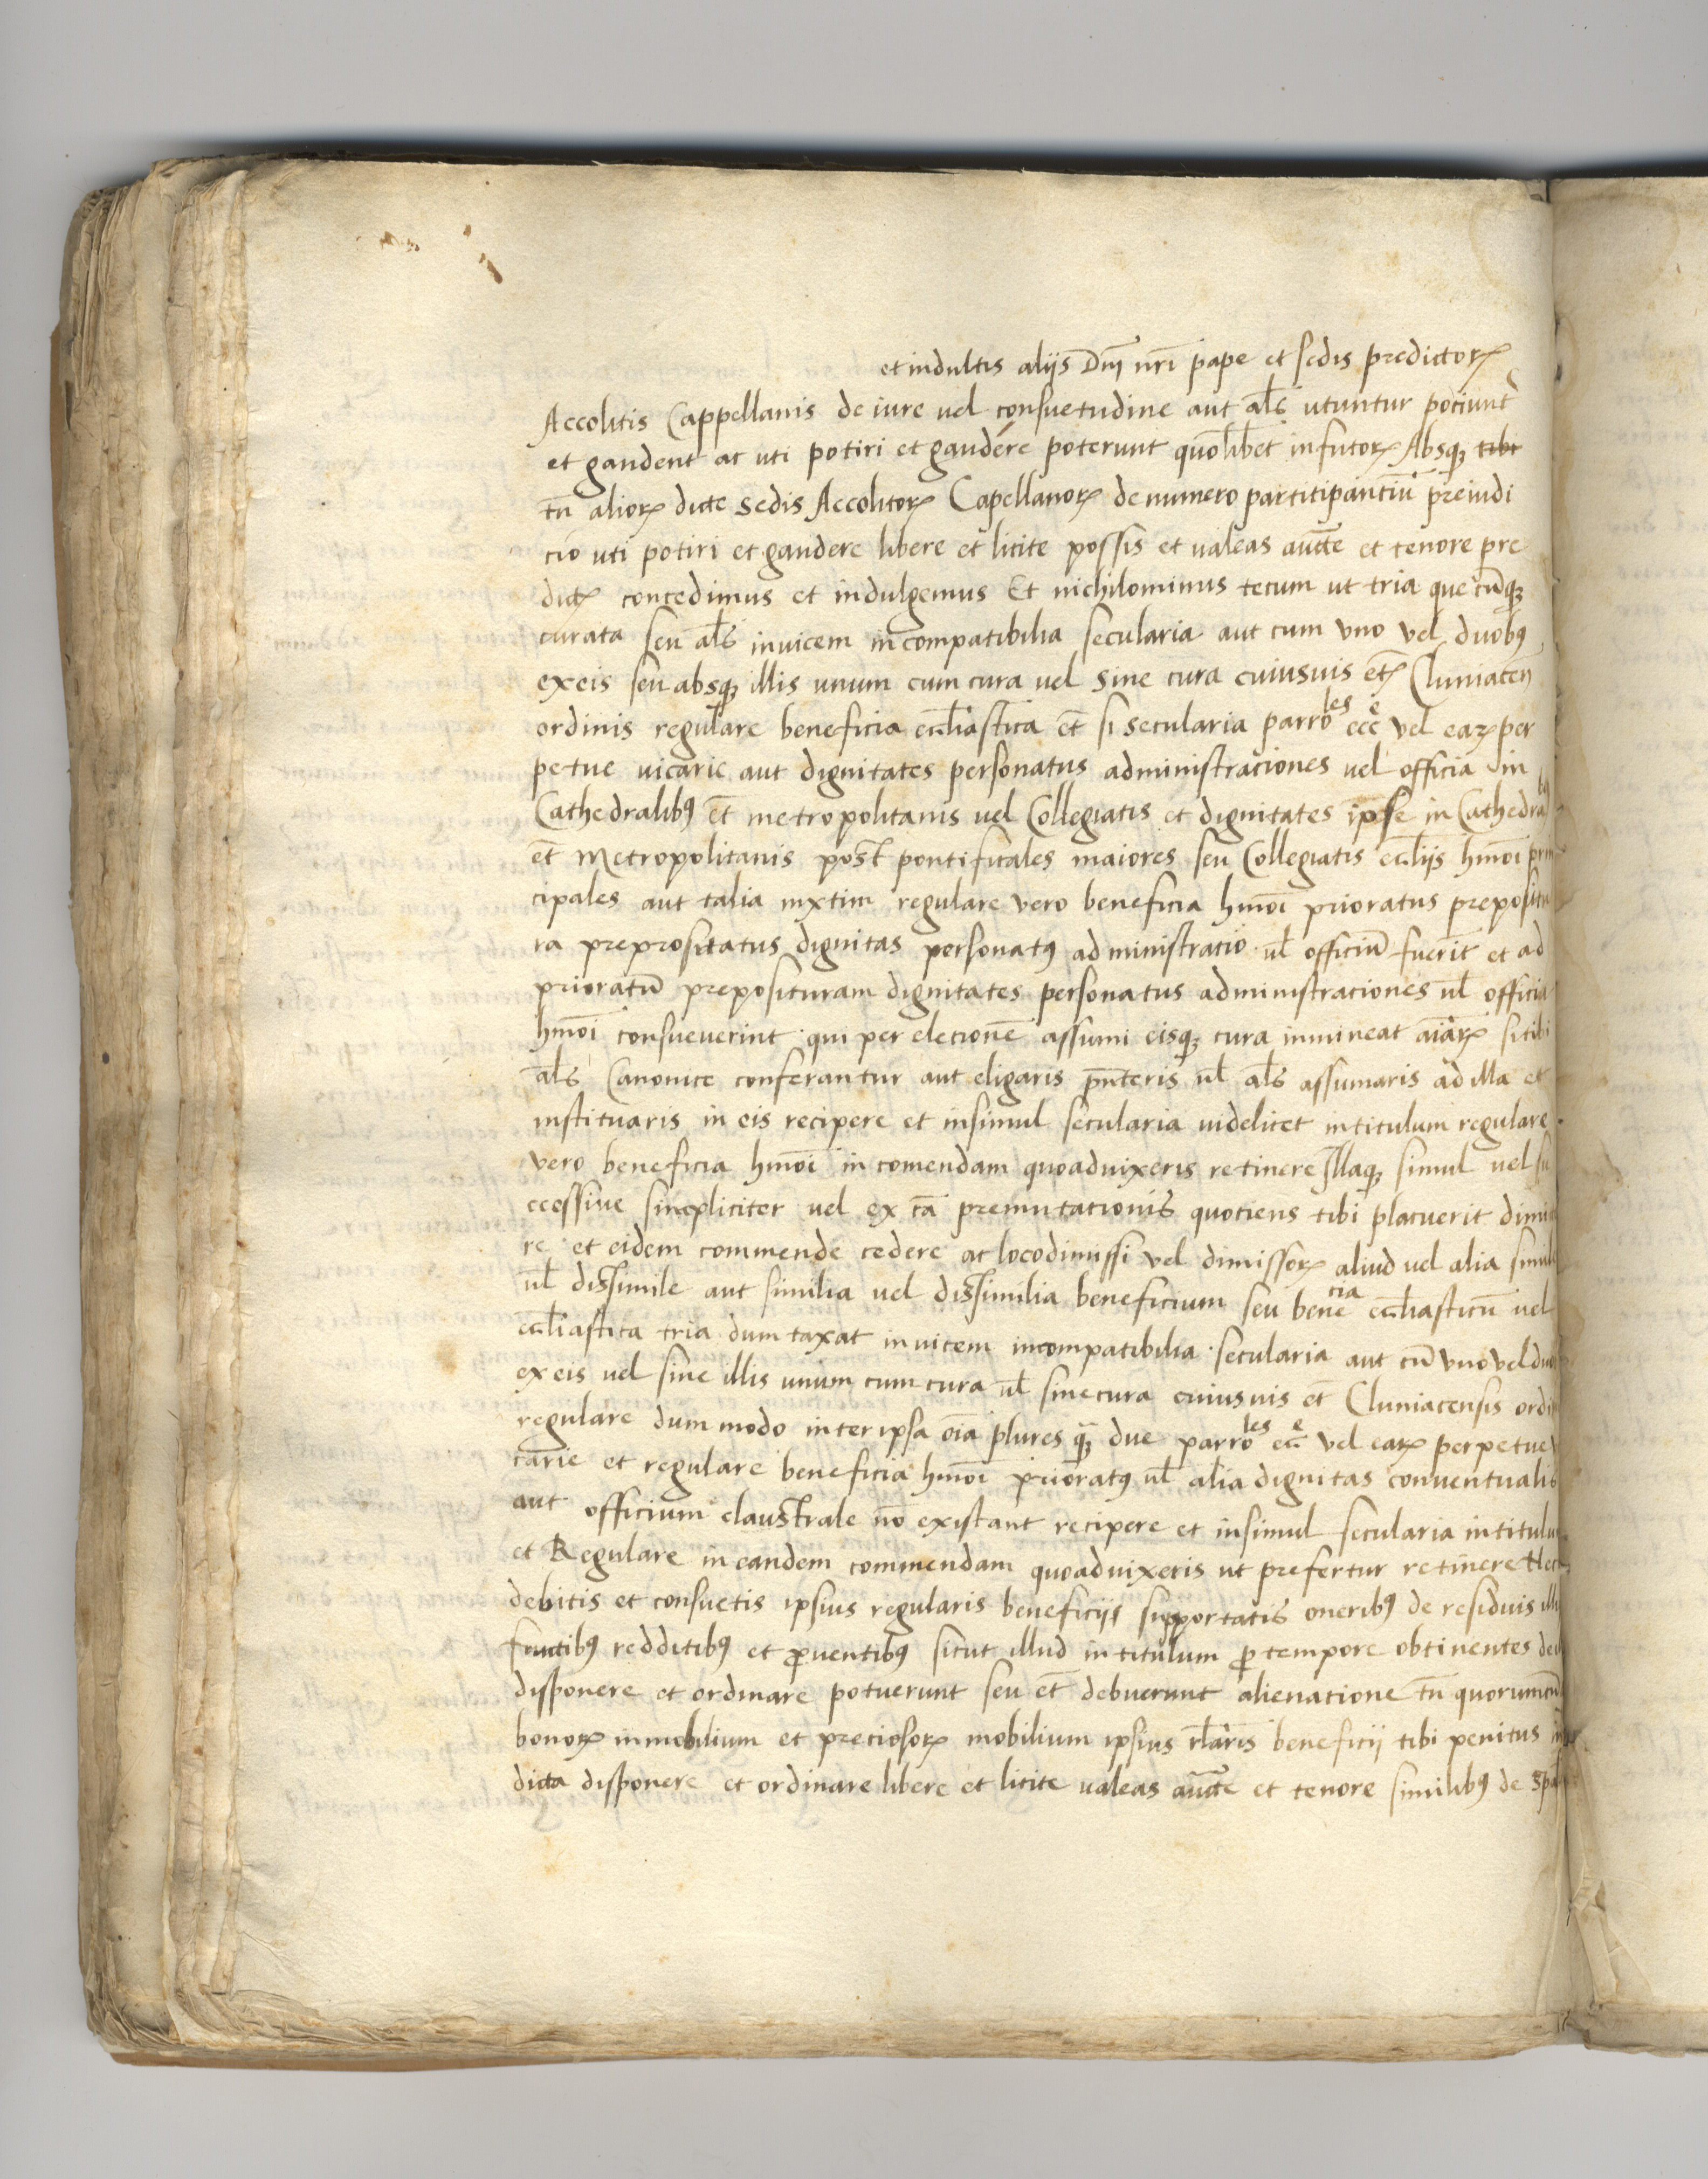 et indultis aliis Dnī nrī pape et sedis predictorꝝ
Accolitis Cappellanis de iure vel consuetudine aut als̄ utuntur potiunt̄
et gaudent ac uti potiri et gaudére poterunt quōlibet in futorꝝ Absqꝫ tibi
tn̄ aliorꝝ dicte sedis Accolitorꝝ Capellanorꝝ de numero participantiū preiudi
cio uti potiri et gaudere libere et licite possis et valeas auc̄te et tenore pre
dictꝝ concedimus et indulgemus Et nichilominus tecum ut tria que cūqꝫ
curata seu als̄ invicem in compatibilia secularia aut cum uno vel duobꝰ
ex eis seu absqꝫ illis unum cum cura vel sine cura cuiusvis etꝝ Cluniaceñ
ordinis regulare beneficia eccl̄iastica et̄ si secularia parroles ecc̄e vel earꝝ per
petue vicarie aut dignitates personatus administraciones vel officia in
Cathedralibꝰ et̄ metropolitanis vel Collegiatis et dignitates ipse in Cathedra
et̄ Metropolitanis post pontificales maiores seu Collegiatis eccl̄iis hmōi prin
cipales aut talia mxtim regulare vero beneficia hmōi prioratus prepositu
ra preprositatus dignitas personatꝰ administratio vl̄ officiū fuerit et ad
prioratū preposituram dignitates personatus administraciones vl̄ officia
hmōi consueverint qui per elecionē assumi eisqꝫ cura immineat aīarꝝ si tibi
als̄ Canonice conferantur aut eligaris pn̄teris vl̄ als̄ assumaris ad illa et
instituaris in eis recipere et insimul secularia videlicet in titulum regulare
vero beneficia hmōi in comendam quoad vixeris retinere Illaqꝫ simul vel su
ccessive simpliciter vel ex cā premutacionis quotiens tibi placuerit dimi
re et eidem commende cedere ac loco dimissi vel dimissorꝝ aliud vel alia simile
vl̄ dissimile aut similia vel dissimilia beneficium seu benecia eccl̄iasticū vel
eccl̄iastica tria dum taxat in vicem incompatibilia secularia aut cū uno vel duo
ex eis vel sine illis unum cum cura vl̄ sine cura cuiusvis et̄ Cluniacensis ordi
regulare dum modo inter ipsa oīa plures qꝫ due parroles ecc̄e vel earꝝ perpetue vi
carie et regulare beneficia hmōi prioratꝰ vl̄ alia dignitas conventualis
aut officium claustrale nō existant recipere et insimul secularia in titulu
et Regulare in eandem commendam quoad vixeris ut prefertur retinere Nec
debitis et consuetis ipsius regularis beneficijs supportatis oneribꝰ de residuis illi
fructibꝰ redditibꝰ et ꝓventibꝰ sicut illud in titulum ꝓ tempore obtinentes de
disponere et ordinare potuerunt seu et̄ debuerunt alienatione tn̄ quorumcū
bonorꝝ inmobilium et preciosorꝝ mobilium ipsius rl̄aris beneficii tibi penitus in
dicta disponere et ordinare libere et licite valeas auc̄te et tenore similibꝰ de spā